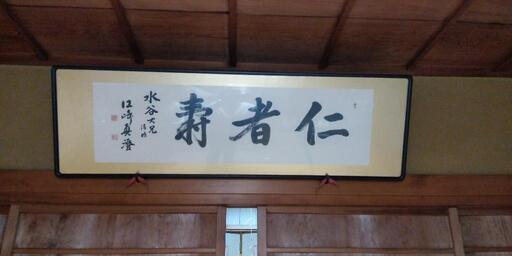 仁者寿
水谷大兄
江崎真澄